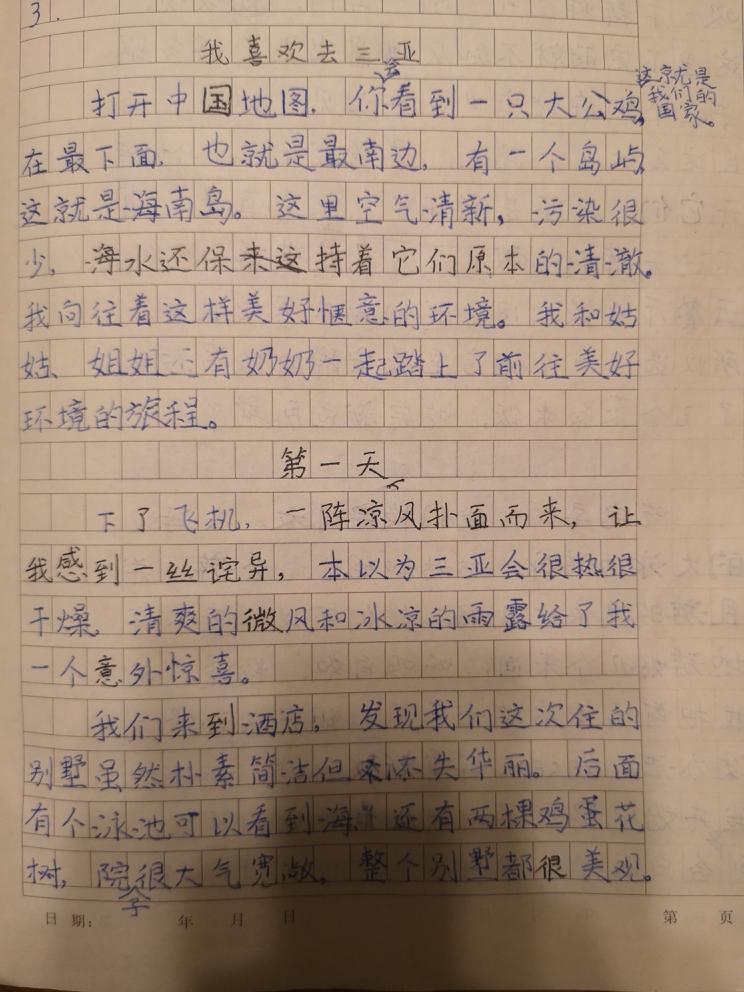 3.
我喜欢去三亚
打开中国地图，你会看到一只大公鸡，这就是我们的国家。
在最下面，也就是最南边，有一个岛屿，
这就是海南岛。这里空气清新，污染很
少，海水还保持着它们原本的清澈。
我向往着这样美好惬意的环境。我和姑
姑、姐姐还有奶奶一起踏上了前往美好
环境的旅程。
第一天
下了飞机，一阵凉风扑面而来，让
我感到一丝诧异，本以为三亚会很热很
干燥，清爽的微风和冰凉的雨露给了我
一个意外惊喜。
我们来到酒店，发现我们这次住的
别墅虽然朴素简洁但不失华丽。后面
有个泳池可以看到海，还有两棵鸡蛋花
树，院子很大气宽敞，整个别墅都很美观。
日期： 年 月 日 第 页